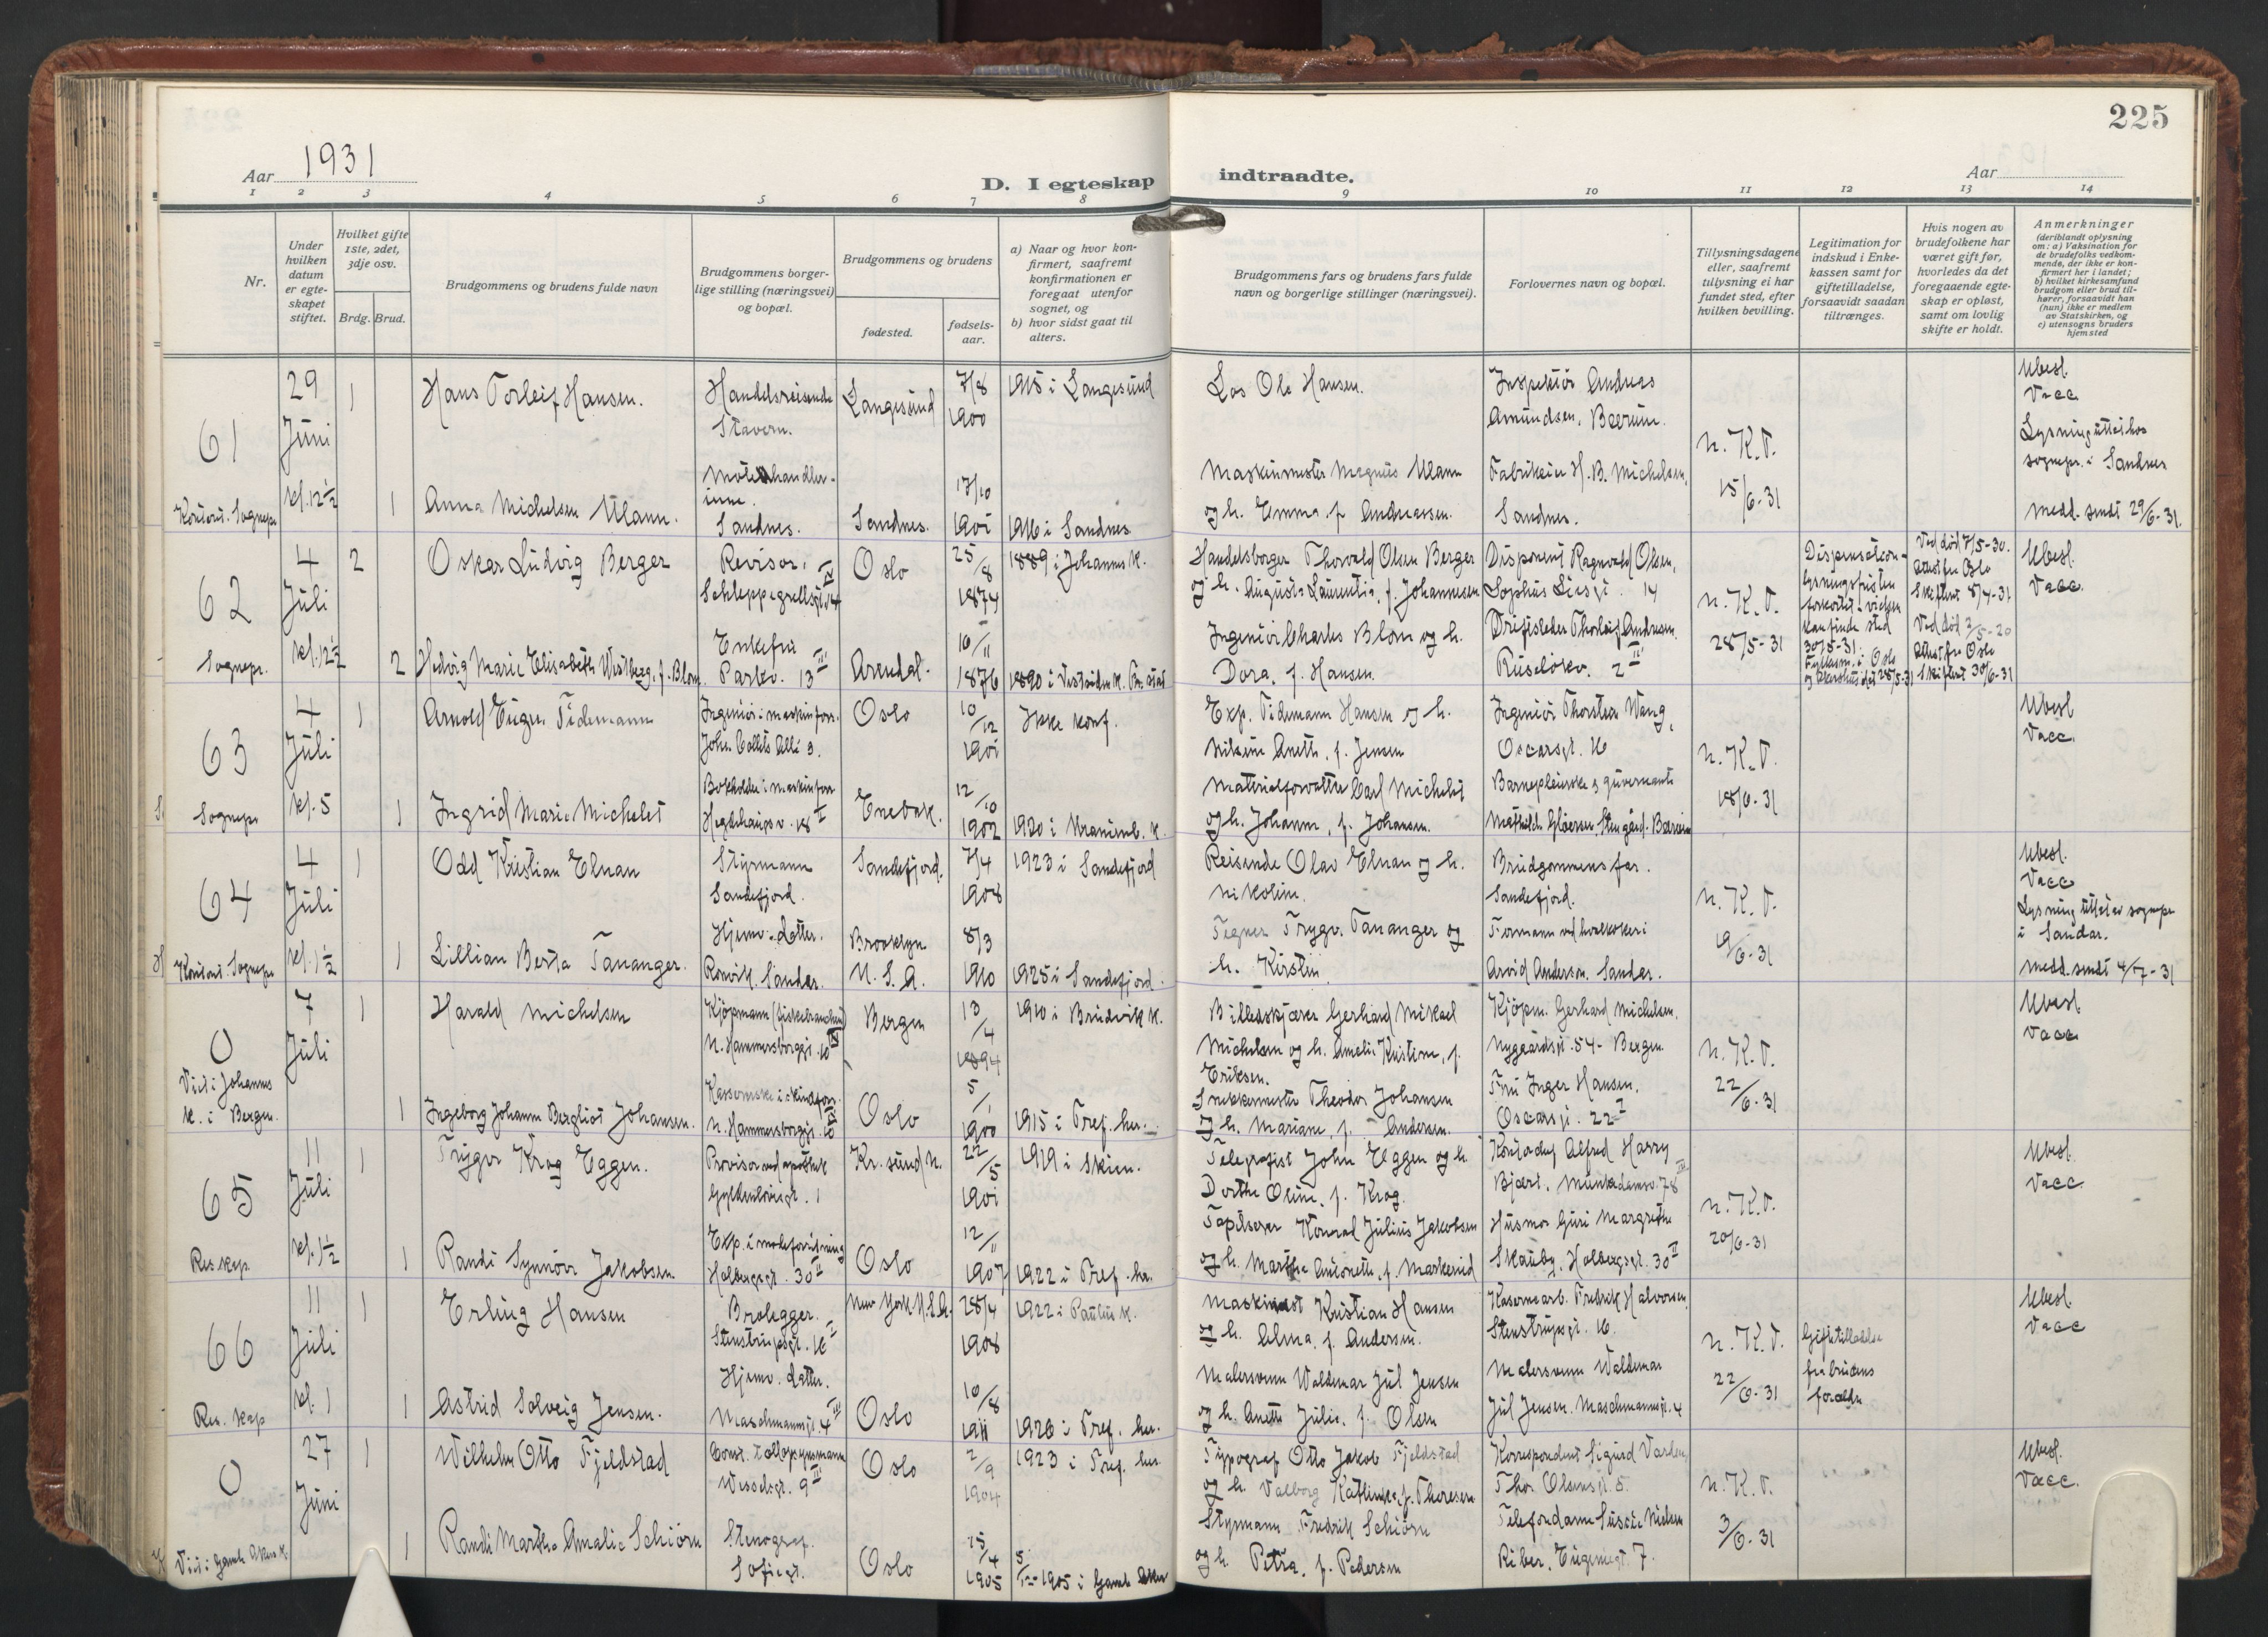 225
Aar 1931
D. I egteskap
indtraadte.
Aar
1 2 3 4 5 6 7 8 9 10 11 12 13 14
Nr.
Under hvilken datum er egteskapet stiftet.
Hvilket gifte 1ste, 2det, 3dje osv.
Brdg. Brud.
Brudgommens og brudens fulde navn
Brudgommens borgerlige stilling (næringsvei) og bopæl.
Brudgommens og brudens
fødested.
fødselsaar.
a) Naar og hvor konfirmert, saafremt konfirmationen er foregaat utenfor sognet, og
b) hvor sidst gaat til alters.
Brudgommens fars og brudens fars fulde navn og borgerlige stillinger (næringsvei).
Forlovernes navn og bopæl.
Tillysningsdagene eller, saafremt tillysning ei har fundet sted, efter hvilken bevilling.
Legitimation for indskud i Enkekassen samt for giftetilladelse, forsaavidt saadan tiltrænges.
Hvis nogen av brudefolkene har været gift før, hvorledes da det foregaaende egteskap er opløst, samt om lovlig skifte er holdt.
Anmerkninger
(deriblandt oplysning om: a) Vaksination for de brudefolks vedkommende, der ikke er konfirmert her i landet; b) hvilket kirkesamfund brudgom eller brud tilhører, forsaavidt han (hun) ikke er medlem av Statskirken, og c) utensogns bruders hjemsted
61
29 Juni kl. 12½
Kontoret. Sognepr.
1 Hans Torleif Hansen.
Handelsreisende Stavern.
Langesund
7/8 1900
1915 i Langesund
Los Ole Hansen.
Inspektør Andreas Amundsen, Bærum.
n. K. T. 15/6-31
Ubesl. Vacc.
Lysning uttatt hos sognepr. i Sandnes
Medd. sendt 29/6-31.
1 Anna Michelsen Ulann.
Sandnes.
Sandnes.
17/10 1901
1916 i Sandnes
Maskinmester Magnus Ulann og h. Emma f. Andreassen.
Fabrikeier H. B. Michelsen, Sandnes.
62
4 Juli kl. 12½
Sognepr.
2 Oskar Ludvig Berger
Revisor. Schleppegrellsgt. 14 IV
Oslo
25/8 1874
1889 i Johannes k.
Handelsborger Thorvald Olsen Berger og h. Augusta Laurentia, f. Johannesen
Disponent Ragnvald Olsen, Sophus Liesgt. 14
n. K. T. 28/5-31
Ved død 7/5-30. Attest fra Oslo Skifterett 8/4-31
Ubesl. Vacc.
2 Hedvig Marie Elisabeth Westberg, f. Blom.
Enkefru Parkv. 13 III
Arendal.
10/11 1876
Ingeniør Charles Blom og h. Dora, f. Hansen.
Driftsleder Thorleif Andresen. Ruseløkv. 2 III
63
4 Juli kl. 5
Sognepr
1 Arnold Eugen Tidemann
Ingeniør i maskinforr. John Colletts Allé 3.
Oslo
10/12 1901
Ikke konf.
Exp. Tidemann Hansen og h.
Ingeniør Thorsten Wang, Oscarsgt. 16
n. K. T. 18/6-31
Ubesl Vacc.
1 Ingrid Marie Michelet
Bokholder i maskinforr Hegdehaugsv. 18 I
Enebak.
12/10 1902
1920 i Uranienb. k.
Materialforvalter Carl Michelet og h. Johanne, f. Johansen.
64
4 Juli kl. 1½
Kontoret. Sognepr
1 Odd Kristian Elnan
Styrmann Sandefjord.
Sandefjord.
7/4 1908
1923 i Sandefjord
Reisende Olav Elnan og h. Nikoline.
Brudgommens far. Sandefjord.
n. K. T. 19/6-31
Ubesl. Vacc
Lysning uttatt av sognepr i Sandar.
Medd. sendt 4/7-31
1 Lillian Berta Tananger.
Hjemv. datter. Ranvik. Sandar.
Brooklyn U. S. A.
8/3 1910
1925 i Sandefjord.
Tegner Trygve Tananger og h. Kirstin
Formann ved hvalkokeri Arvid Andersen. Sandar.
0
7 Juli
Viet i Johannes k. i Bergen.
1 Harald Michelsen
Kjøpmann (fiskebranchen) N. Hammersborggt. 10
Bergen
13/4 1894
1910 i Bruvik k.
Billedskjærer Gerhard Mikael Michelsen og h. Amalie Kristine, f. Eriksen.
Kjøpm. Gerhard Michelsen. Nygaardsgt. 54 - Bergen.
n. K. T. 22/6-31
Ubesl Vacc
1 Ingeborg Johanne Bergliot Johansen.
N. Hammersborggt. 10
Oslo
5/1 1900
1915 i Tref. her.
Snekkermester Theodor Johansen og h. Mariane, f. Andersen.
Fru Inger Hansen. Oscarsgt. 22 I
65
11 Juli kl. 1½
Res. kap.
1 Trygve Krog Eggen.
Provisor ved apothek Gyldenløvesgt. 1
Kr. sund N.
22/5 1901
1919 i Skien.
Telegrafist John Eggen og h. Dorthe Oline, f. Krog.
Kontorchef Alfred Harry Bjært. Munkedamsv. 78 III
n. K. T. 20/6-31
Ubesl. Vacc.
1 Randi Synnøve Jakobsen
Exp. i moteforretning Holbergsgt. 30 II
Oslo
12/11 1907
1922 i Tref. her.
Tapetserer Konrad Julius Jakobsen og h. Marthe Antonette, f. Markerud
Husmor Guri Margrethe Skauby, Holbergsgt. 30 II
66
11 Juli kl. 1
Res. kap
1 Erling Hansen
Brolegger. Stenstrupsgt. 16 I
New York U.S.A.
28/4 1908
1922 i Paulus k.
Maskinist Kristian Hansen og h. Alma, f. Andersen.
Kasernearb. Fredrik Halvorsen, Stenstrupsgt. 16.
n. K. T. 22/6-31
Giftetilladelse fra brudens forældre
Ubesl. Vacc
1 Astrid Solveig Jensen.
Hjemv. datter. Maschmannsgt. 4 III
Oslo
10/8 1911
1926 i Tref. her.
Malersvenn Waldemar Jul Jensen og h. Anette Julie, f. Olsen
Malersvenn Waldemar Jul Jensen. Maschmannsgt. 4
0
27 Juni
Viet i Gamle Akers k.
1 Wilhelm Otto Fjeldstad
Const. tolloppsynsmann Wesselsgt. 9 III
Oslo
2/9 1904
1923 i Tref. her.
Typograf Otto Jakob Fjeldstad og h. Valborg Kathinka, f. Thoresen
Korrespondent Sigurd Varden, Thv. Olsensgt. 5.
n. K. T. 3/6-31
Ubesl. Vacc.
1 Randi Marthe Amalie Schiørn
Stenograf. Sofiesgt.
Oslo
25/4 1905
Styrmann Fredrik Schiørn og h. Petra, f. Pedersen
Riber, Eugeniesgt. 7.